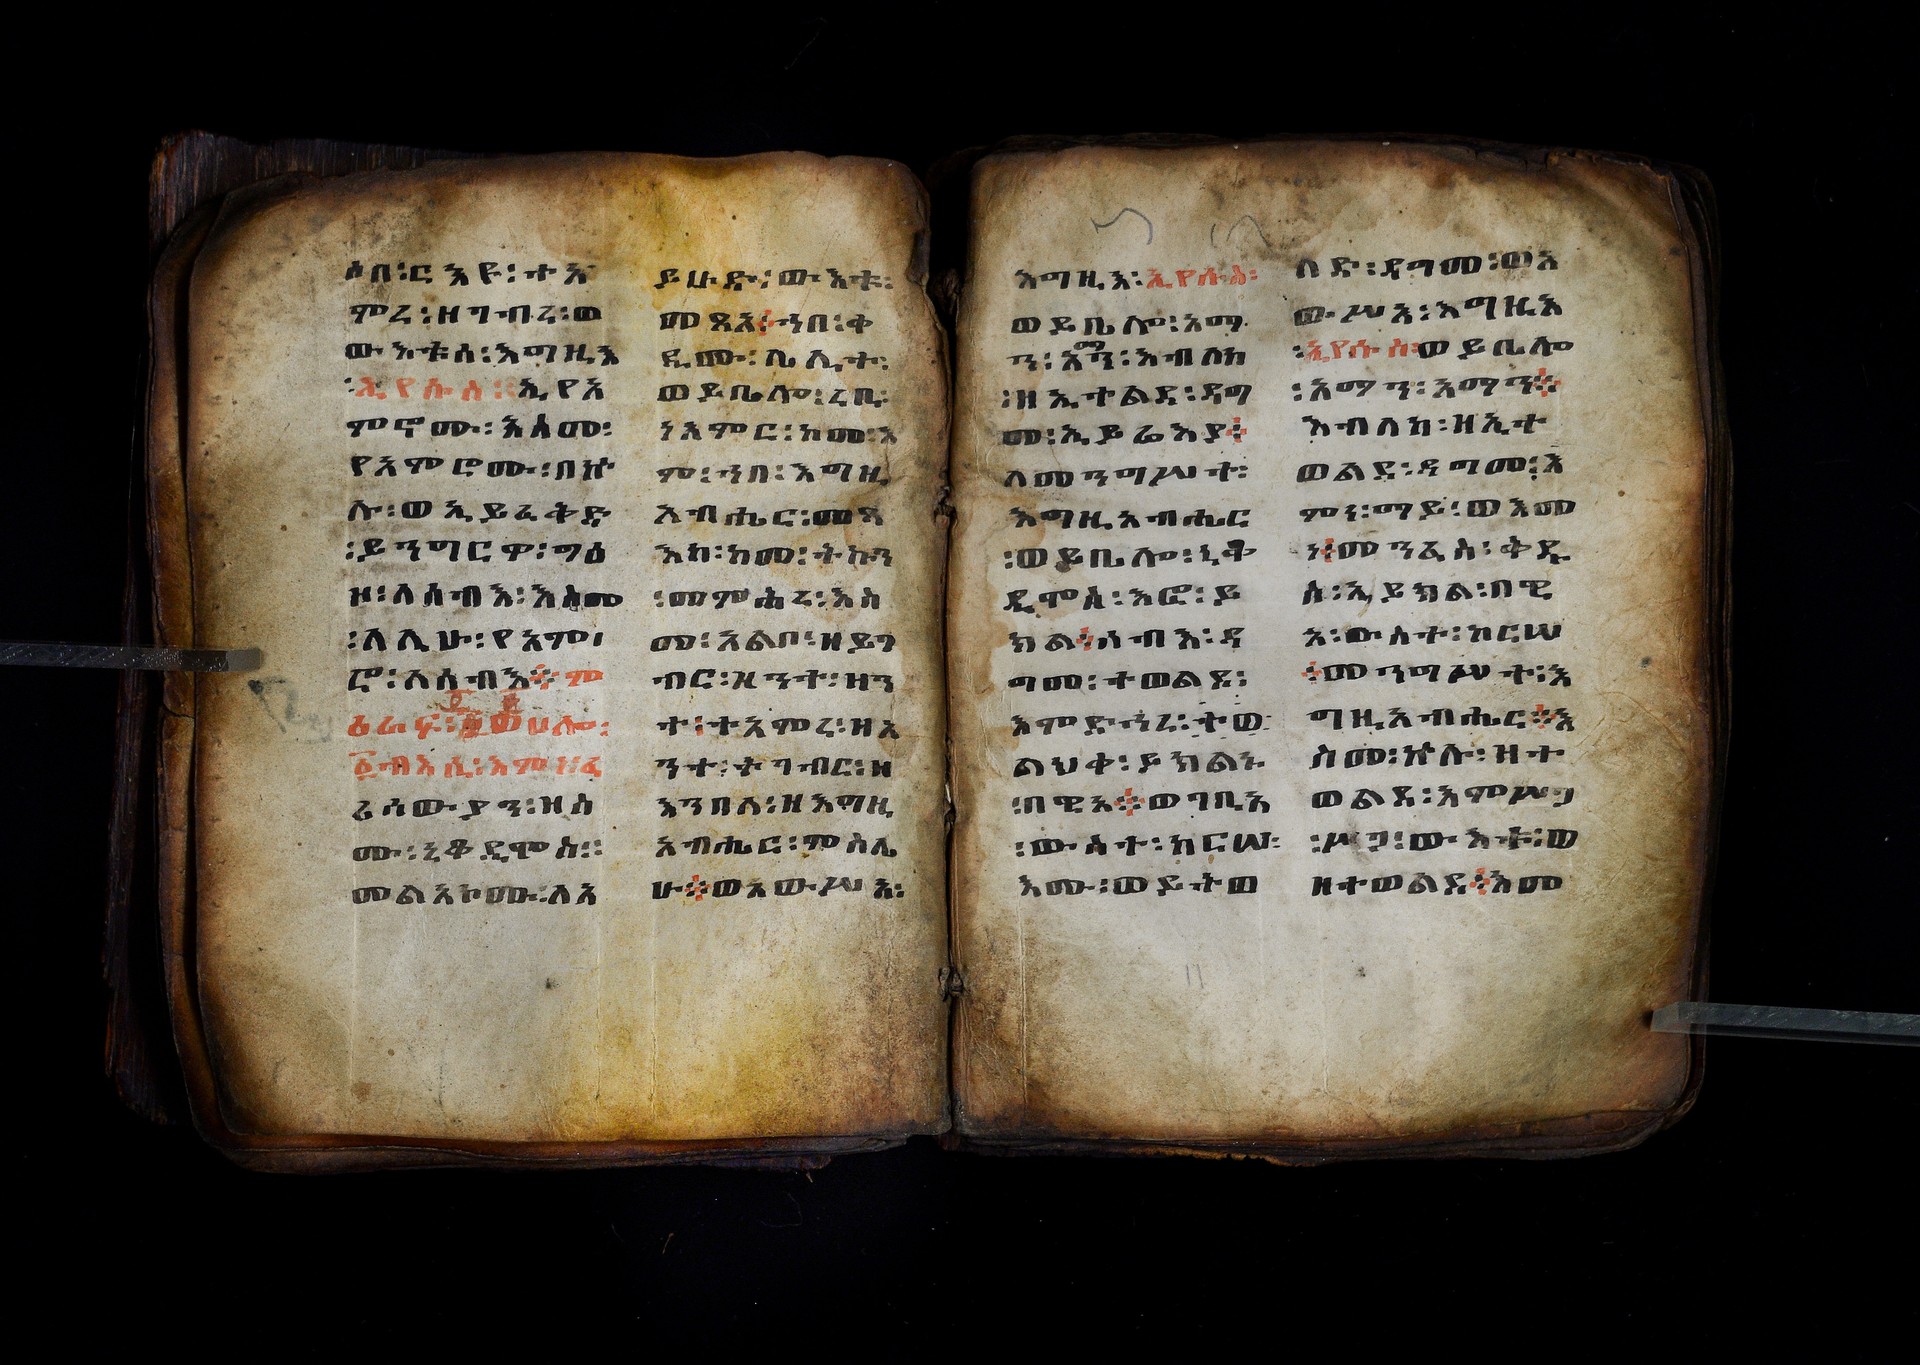 ሶበ፡ርእዩ፡ተአ
ምረ፡ዘገብረ፡ወ
ውእቱሰ፡እግዚእ
፡ኢየሱስ፡ኢየአ
ምኖሙ፡እስመ፡
የአምሮሙ፡በኵ
ሉ፡ወኢይፈቅድ
፡ይንግርዎ፡ግዕ
ዞ፡ለሰብእ፡እስመ
፡ለሊሁ፡የአም፡
ሮ፡ለሰብእ፨ም
ዕራፍ፡ወሀሎ፡
፩ብእሲ፡እምነፈ
ሪሳውያን፡ዘስ
ሙ፡ኒቆዲሞስ፡፡
መልአኮሙ፡ለአ
ይሁድ፡ውእቱ፡
መጽአ፨ኀበ፡ቀ
ዲሙ፡ሌሊተ፡
ወይቤሎ፡ረቢ፡
ነአምር፡ከመ፡እ
ም፡ኀበ፡እግዚ
አብሔር፡መጻ
እከ፡ከመ፡ትኩን
፡መምህረ፡እስ
መ፡አልቦ፡ዘይገ
ብር፡ዘንተ፡ዘን
ተ፡ተአምረ፡ዘአ
ንተ፡ትገብር፡ዘ
እንበለ፡ዘእግዚ
አብሔር፡ምስሌ
ሁ፨ወአውሥአ፡
እግዚእ፡ኢየሱስ፡
ወይቤሎ፡አማ
ን፡አማን፡እብለከ
፡ዘኢተልደ፡ዳግ
መ፡ኢይሬእያ፨
ለመንግሥተ፡
እግዚአብሔር
፡ወይቤሎ፡ኒቆ
ዲሞስ፡እፎ፡ይ
ክል፨ሰብእ፡ዳ
ግመ፡ተወልዶ፡
እምድኅረ፡ተወ
ልህቀ፡ይክልኑ
፡በዊአ፨ወገቢአ
፡ውስተ፡ከርሠ፡
እሙ፡ወይትወ
ለድ፡ዳግመ፡ወአ
ውሥአ፡እግዚእ
፡ኢየሱስ፡ወይቤሎ
፡አማን፡አማን፨
እብለከ፡ዘኢተ
ወልደ፡ዳግመ፡እ
ምነ፡ማይ፡ወእመ
ን፨መንፈስ፡ቅዱ
ስ፡ኢይክል፡በዊ
አ፡ውስተ፡ከርሠ
፨መንግሥተ፡እ
ግዚአብሔር፨እ
ስመ፡ኵሉ፡ዘተ
ወልደ፡እምሥጋ
፡ሥጋ፡ውእቱ፡ወ
ዘተወልደ፨እመ